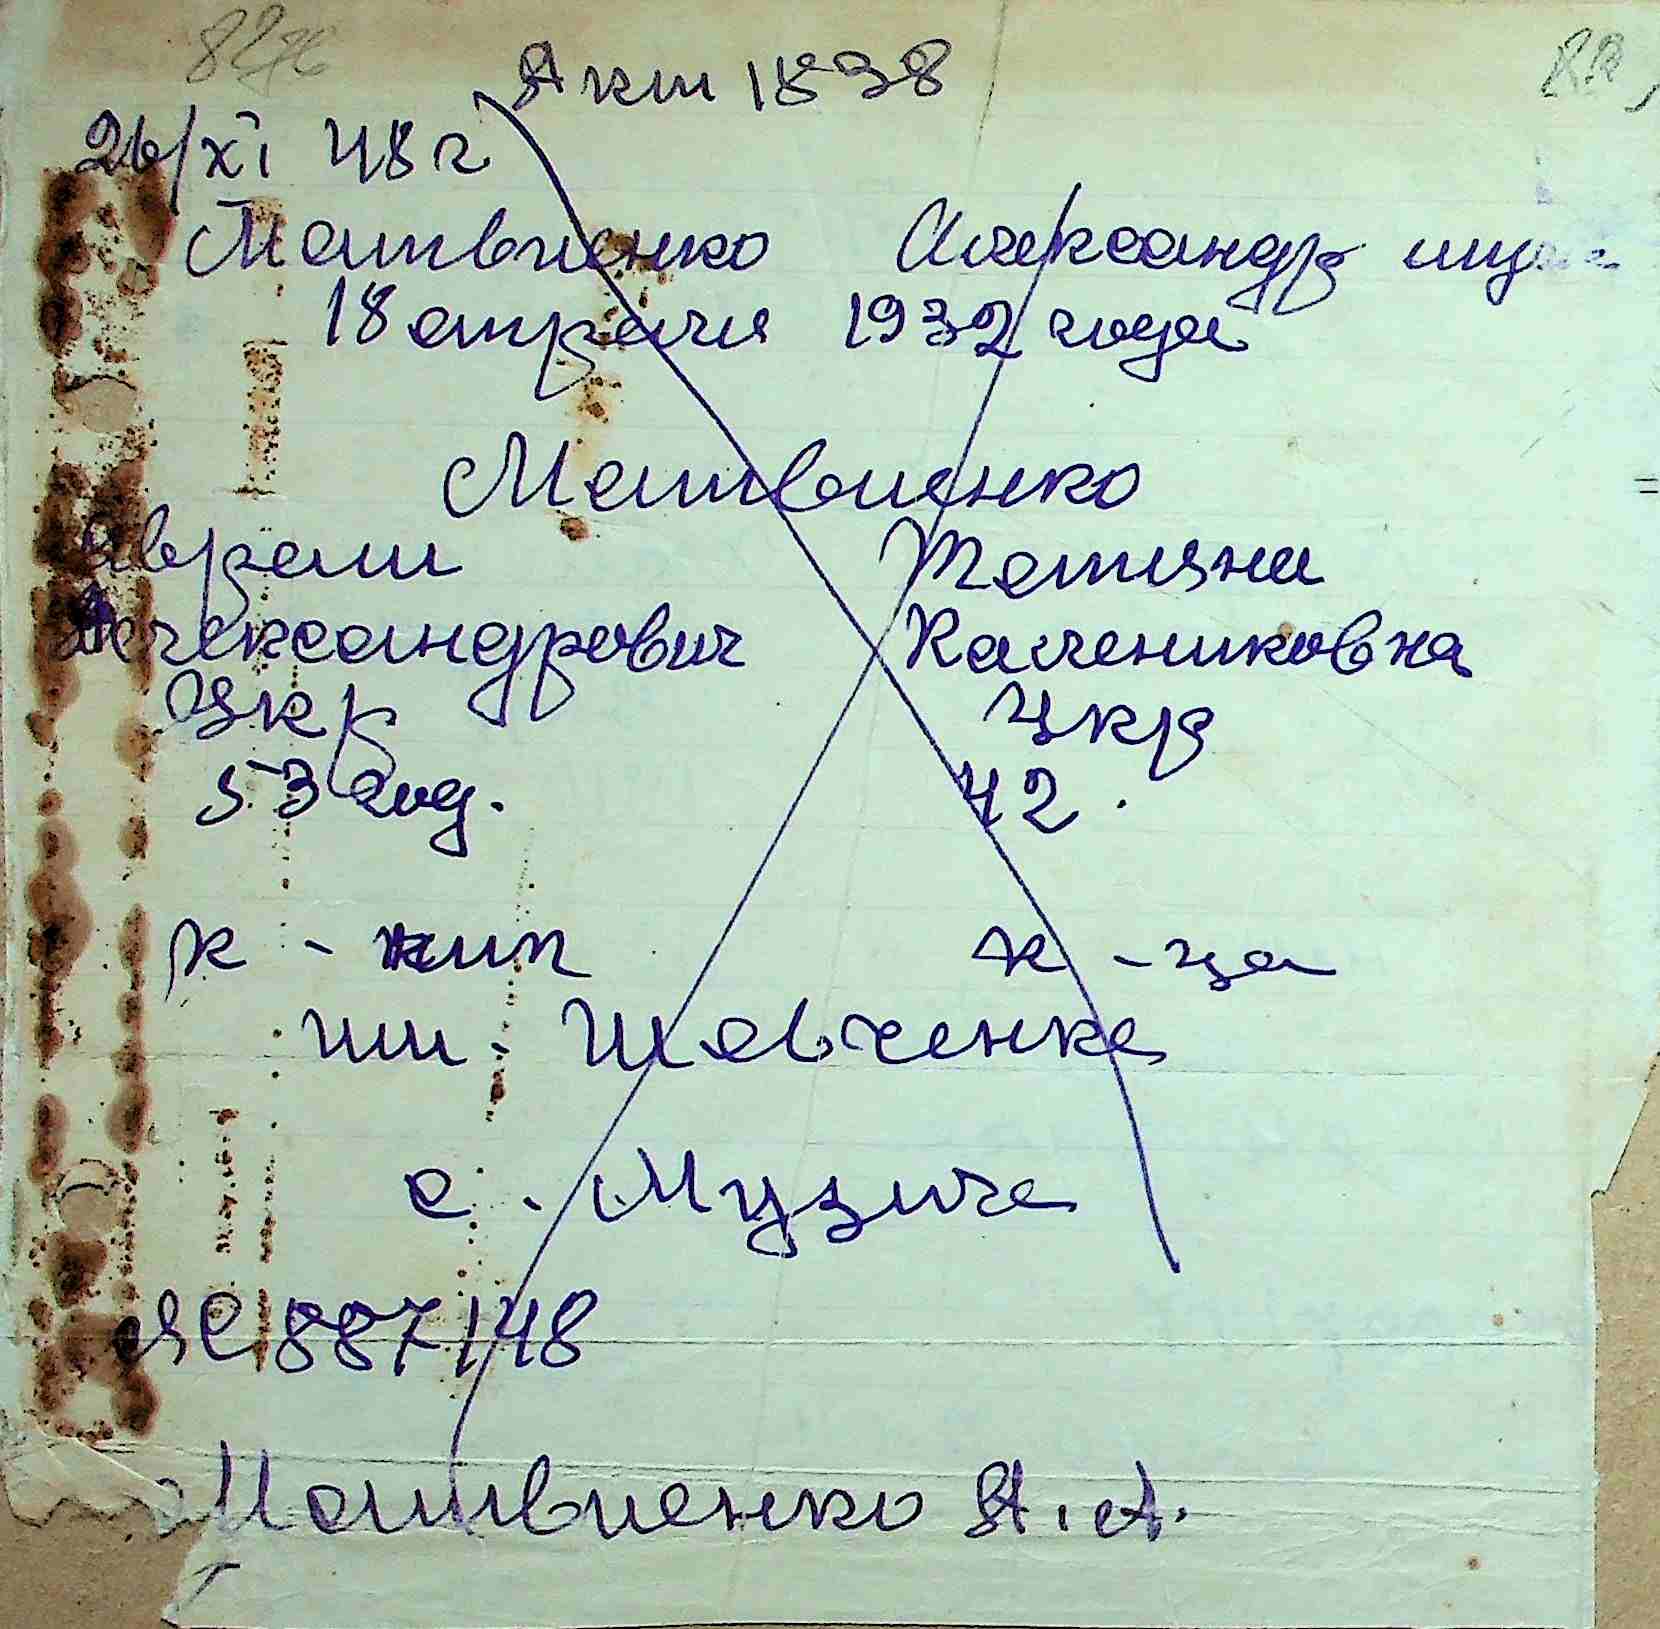 827б 82
Акт 1838
26/XI 48 г
Матвиенко Александр муж
18 апреля 1932 года
Матвиенко
Аврам Татяна
Александрович Калениковна
Укр Укр
53 год. 42.
к - ник к - ца
им. Шевченка
с. Музиче
ЯС 887148
Матвиенко А. А.